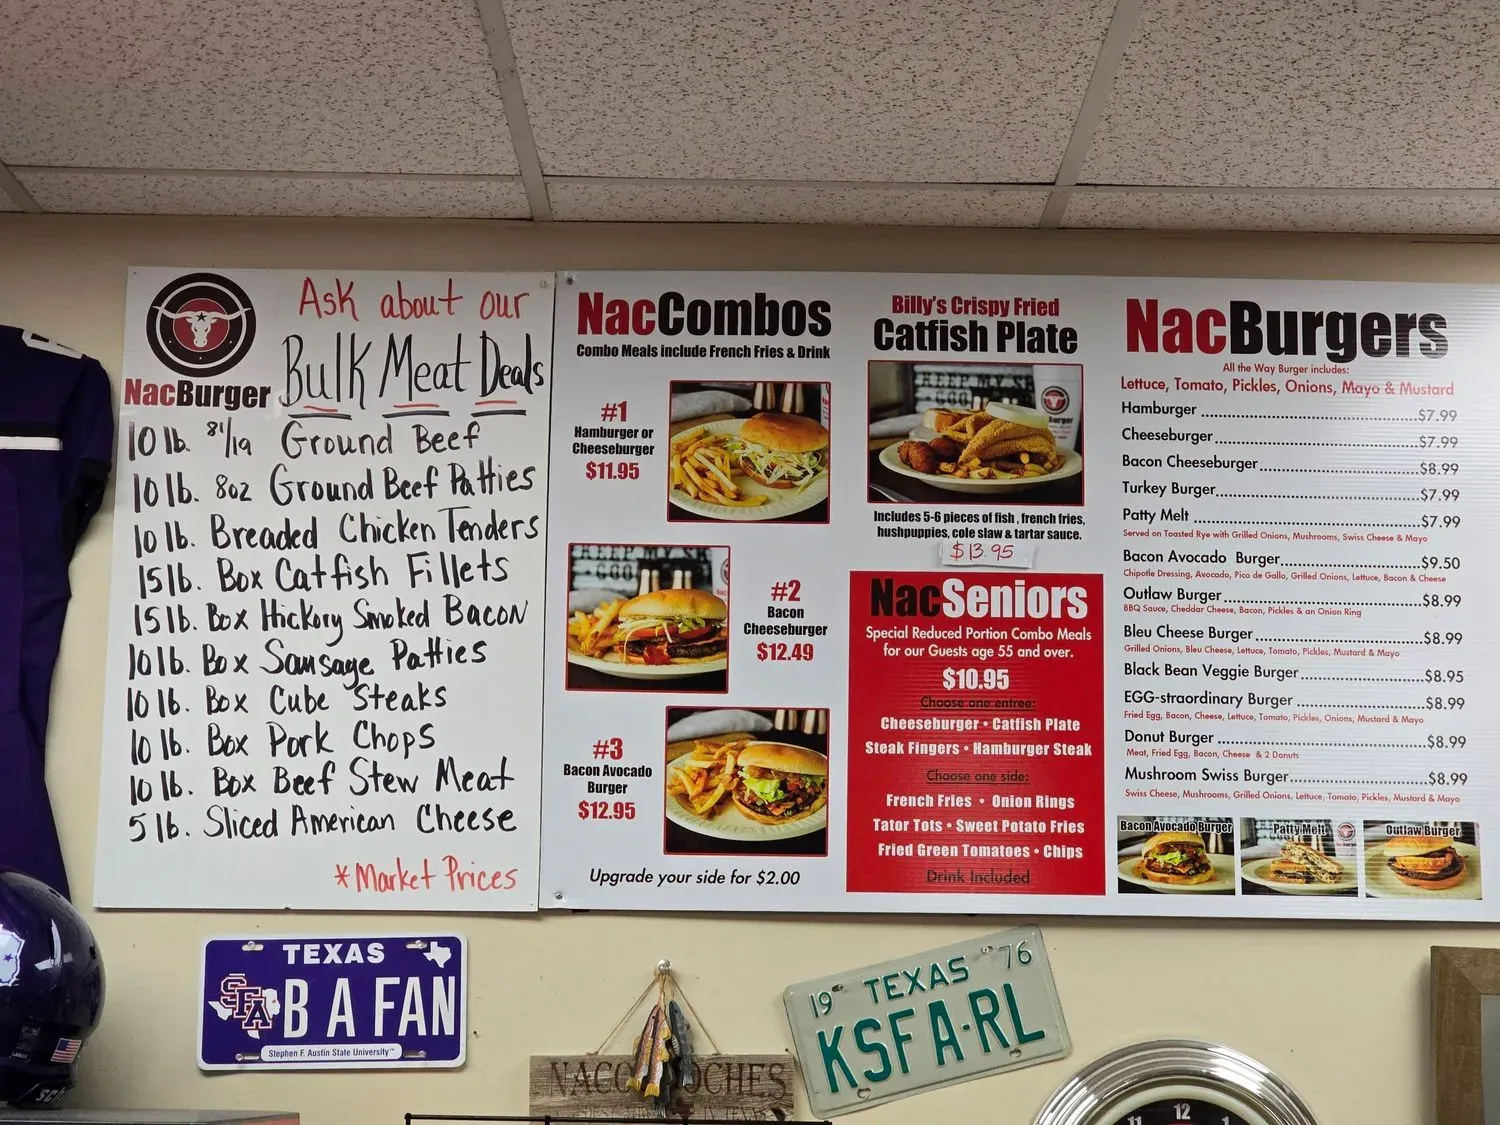 NacBurger
Ask about our
Bulk Meat Deals
10 lb. 81/19 Ground Beef
10 lb. 8oz Ground Beef Patties
10 lb. Breaded Chicken Tenders
15 lb. Box Catfish Fillets
15 lb. Box Hickory Smoked Bacon
10 lb. Box Sausage Patties
10 lb. Box Cube Steaks
10 lb. Box Pork Chops
10 lb. Box Beef Stew Meat
5 lb. Sliced American Cheese
*Market Prices
NacCombos
Combo Meals include French Fries & Drink
#1
Hamburger or
Cheeseburger
$11.95
#2
Bacon
Cheeseburger
$12.49
#3
Bacon Avocado
Burger
$12.95
Upgrade your side for $2.00
Billy's Crispy Fried
Catfish Plate
Includes 5-6 pieces of fish , french fries,
hushpuppies, cole slaw & tartar sauce.
$13.95
NacSeniors
Special Reduced Portion Combo Meals
for our Guests age 55 and over.
$10.95
Choose one entree:
Cheeseburger • Catfish Plate
Steak Fingers • Hamburger Steak
Choose one side:
French Fries • Onion Rings
Tator Tots • Sweet Potato Fries
Fried Green Tomatoes • Chips
Drink Included
NacBurgers
All the Way Burger includes:
Lettuce, Tomato, Pickles, Onions, Mayo & Mustard
Hamburger ........ $7.99
Cheeseburger ........ $7.99
Bacon Cheeseburger ........ $8.99
Turkey Burger ........ $7.99
Patty Melt ........ $7.99
Served on Toasted Rye with Grilled Onions, Mushrooms, Swiss Cheese & Mayo
Bacon Avocado Burger ........ $9.50
Chipotle Dressing, Avocado, Pico de Gallo, Grilled Onions, Lettuce, Bacon & Cheese
Outlaw Burger ........ $8.99
BBQ Sauce, Cheddar Cheese, Bacon, Pickles & an Onion Ring
Bleu Cheese Burger ........ $8.99
Grilled Onions, Bleu Cheese, Lettuce, Tomato, Pickles, Mustard & Mayo
Black Bean Veggie Burger ........ $8.95
EGG-straordinary Burger ........ $8.99
Fried Egg, Bacon, Cheese, Lettuce, Tomato, Pickles, Onions, Mustard & Mayo
Donut Burger ........ $8.99
Meat, Fried Egg, Bacon, Cheese & 2 Donuts
Mushroom Swiss Burger ........ $8.99
Swiss Cheese, Mushrooms, Grilled Onions, Lettuce, Tomato, Pickles, Mustard & Mayo
Bacon Avocado Burger
Patty Melt
Outlaw Burger
TEXAS
SFA B A FAN
Stephen F. Austin State University™
19 TEXAS '76
KSFA-RL
12
11
1